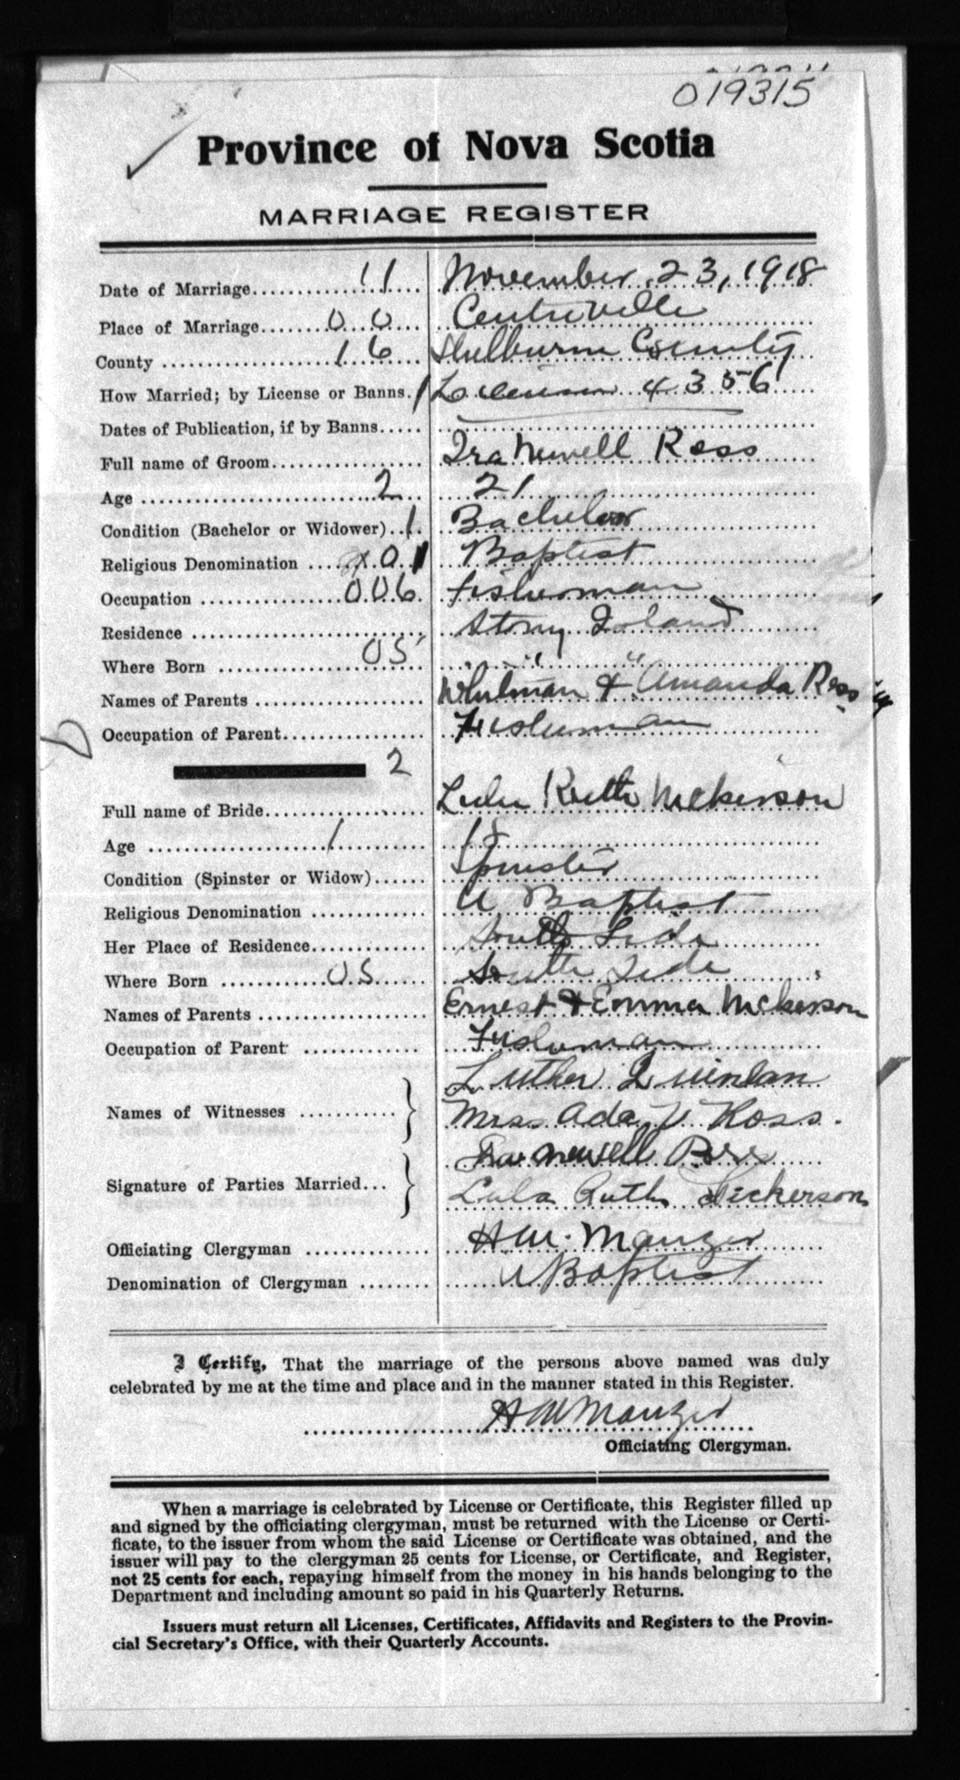 019315
Province of Nova Scotia
MARRIAGE REGISTER
Date of Marriage 11 November 23, 1918
Place of Marriage 0 0 Centreville
County 16 Shelburne County
How Married; by License or Banns. 1 License 4356
Dates of Publication, if by Banns
Full name of Groom Ira Newell Ross
Age 2 21
Condition (Bachelor or Widower) 1 Bachelor
Religious Denomination 01 Baptist
Occupation 006 Fisherman
Residence Stony Island
Where Born 05 " "
Names of Parents Whitman & Amanda Ross
Occupation of Parent Fisherman
2
Full name of Bride Lula Ruth Nickerson
Age 1 18
Condition (Spinster or Widow) Spinster
Religious Denomination U Baptist
Her Place of Residence South Side
Where Born 05 South Side
Names of Parents Ernest & Emma Nickerson
Occupation of Parent Fisherman
Luther Quinlan
Names of Witnesses
Mrss Ada Ross.
Ira Newell Ross
Signature of Parties Married...
Lula Ruth Nickerson
Officiating Clergyman H W. Manzer
Denomination of Clergyman U Baptist
I Certify, That the marriage of the persons above named was duly
celebrated by me at the time and place and in the manner stated in this Register.
H W Manzer
Officiating Clergyman.
When a marriage is celebrated by License or Certificate, this Register filled up
and signed by the officiating clergyman, must be returned with the License or Certi-
ficate, to the issuer from whom the said License or Certificate was obtained, and the
issuer will pay to the clergyman 25 cents for License, or Certificate, and Register,
not 25 cents for each, repaying himself from the money in his hands belonging to the
Department and including amount so paid in his Quarterly Returns.
Issuers must return all Licenses, Certificates, Affidavits and Registers to the Provin-
cial Secretary's Office, with their Quarterly Accounts.